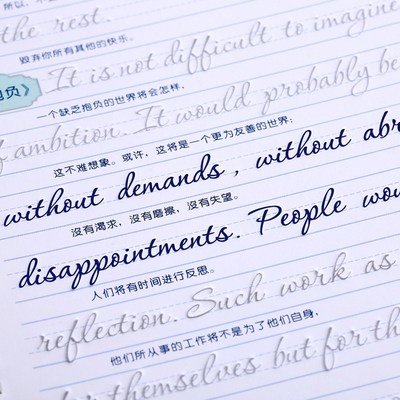 the rest.
毁弃你所有其他的快乐。
It is not difficult to imagine
一个缺乏抱负的世界将会怎样，
ambition. It would probably be
这不难想象。或许，这将是一个更为友善的世界：
without demands, without abr
没有渴求，没有磨擦，没有失望。
disappointments. People wou
人们将有时间进行反思。
reflection. Such work as
他们所从事的工作将不是为了他们自身，
themselves but for th